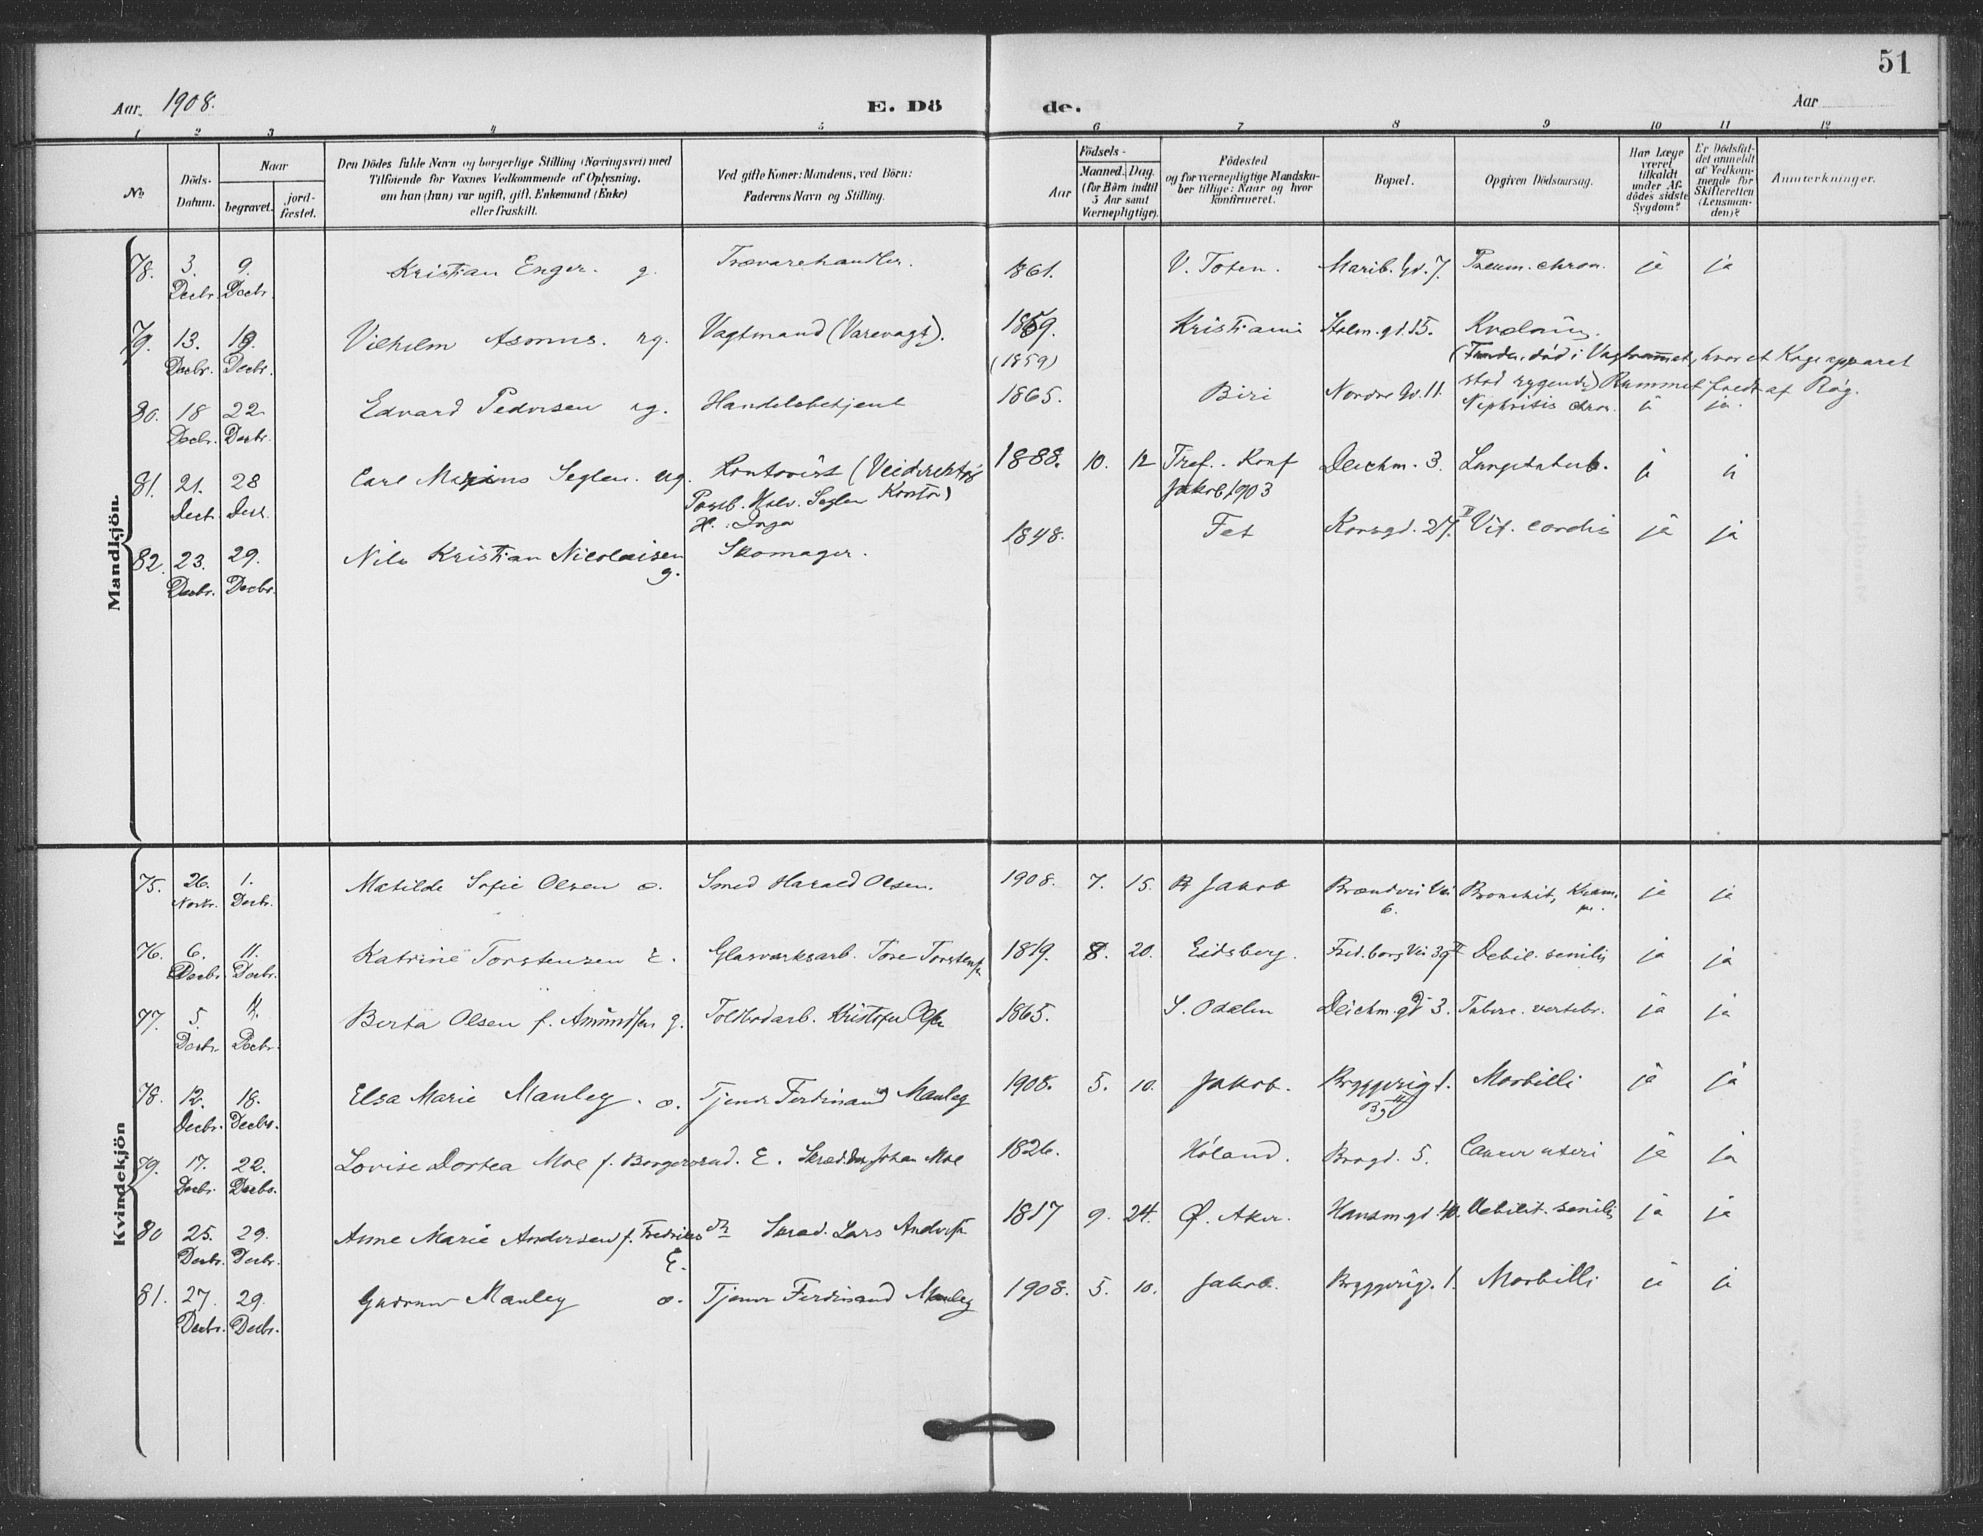 51
Aar 1908.
E. Dö de.
Aar
1 2 3 4 5 6 7 8 9 10 11 12
No
Döds-Datum.
Naar
begravet.
jord-fæstet.
Den Dödes fulde Navn og borgerlige Stilling (Næringsvei) med
Tilföiende for Voxnes Vedkommende af Oplysning,
om han (hun) var ugift, gift, Enkemand (Enke)
eller fraskilt.
Ved gifte Koner: Mandens, ved Börn:
Faderens Navn og Stilling.
Födsels-
Aar
Maaned. Dag.
(for Börn indtil
5 Aar samt
Værnepligtige).
Födested
og for værnepligtige Mandska-
ber tillige: Naar og hvor
konfirmeret.
Bopæl.
Opgiven Dödsaarsag.
Har Læge
været
tilkaldt
under Af-
dödes sidste
Sygdom?
Er Dödsfal-
det anmeldt
af Vedkom-
mende for
Skifteretten
(Lensman-
den)?
Anmerkninger.
Mandkjön
78. 3. Decbr. 9. Decbr. Kristian Enger. g. Trævarehandler. 1861. V. Toten. Marib. Gd. 7. Pneum. chron. ja ja
79. 13. Decbr. 19. Decbr. Vilhelm Asmus. ug. Vagtmand (Varevagt). 1859. (1859) Kristiania Holm. gd. 15. Kvælning.
(Funden död i Vagtrummet, hvor et Kogeapparat
stod rygende) Rummet fuldt af Røg.
80. 18 Decbr. 22. Decbr. Edvard Pedersen ug. Handelsbetjent 1865. Biri Nordre Gd. 11. Nephritis chron. ja ja.
81. 21. Decb. 28 Decb. Carl Marius Seglen. ug. Kontorist (Veidirektør
Kontor)
Postb. Halv. Seglen
H. Inga
1888. 10. 12 Tref. Konf
Jakob 1903
Deichm. 3. Lungetuberk. ja ja
82. 23. Decbr. 29. Decbr. Nils Kristian Nicolaisen
g.
Skomager. 1848. Fet Korsgd. 27. II Vit. cordis ja ja
Kvindekjön
75. 26. Novbr. 1. Decbr. Matilde Sofie Olsen o. Smed Harald Olsen. 1908. 7. 15. Jakob Brændvei Vei
6.
Bronchit, Kram-
pe.
ja ja
76. 6. Decbr. 11. Decbr. Katrine Torstensen E. Glasværksarb. Tore Torstensen 1819. 8. 20. Eidsberg. Fred.borg Vei 39 II Debil. senilis ja ja
77. 5. Decbr. Decbr. Berta Olsen f. Amundsen g. Toldbodarb. Kristofer Olsen 1865. S. Odalen Deichm. gd 3. Tuberc. vertebr. ja ja
78. 12. Decbr. 18. Decbr. Elsa Marie Manley. o. Tjener Ferdinand Manley 1908. 5. 10. Jakob. Bryggerig. 1. Morbilli ja ja
79. 17. Decbr. 22. Decbr. Lovise Dortea Moe f. Borgersrud. E. Skrædder Johan Moe 1826. Høland. Brogd. 5. Cancer uteri ja ja
80 25. Decbr. 29. Decbr. Anne Marie Andersen f. Fredriks dtr
E.
Skræd. Lars Andersen 1817 9. 24. Ø. Aker. Hansm gd 40. Debilit. senilis ja ja
81. 27. Decbr. 29. Decbr. Gudrun Manley o. Tjener Ferdinand Manley 1908. 5. 10. Jakob. Bryggerig. 1. Morbilli ja ja